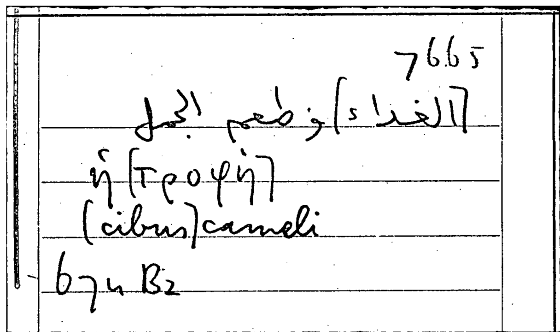 7665
[الغذاء] و طعم الجمل
ἡ [τροφὴ]
[cibus] cameli
674 B2